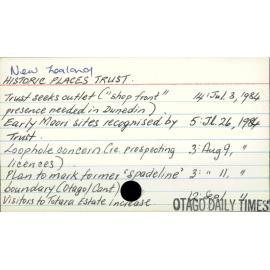 New Zealand
HISTORIC PLACES TRUST.
Trust seeks outlet ("shop front" 14: Jul. 3, 1984
presence needed in Dunedin)
Early Maori sites recognised by 5: Jl. 26, 1984
Trust.
Loophole concern (re. prospecting 3: Aug 9, "
licences)
Plan to mark former 'spadeline' 3: " 11, "
boundary (Otago/Cant)
Visitors to Totara Estate increase 12: Sep 1 "
OTAGO DAILY TIMES